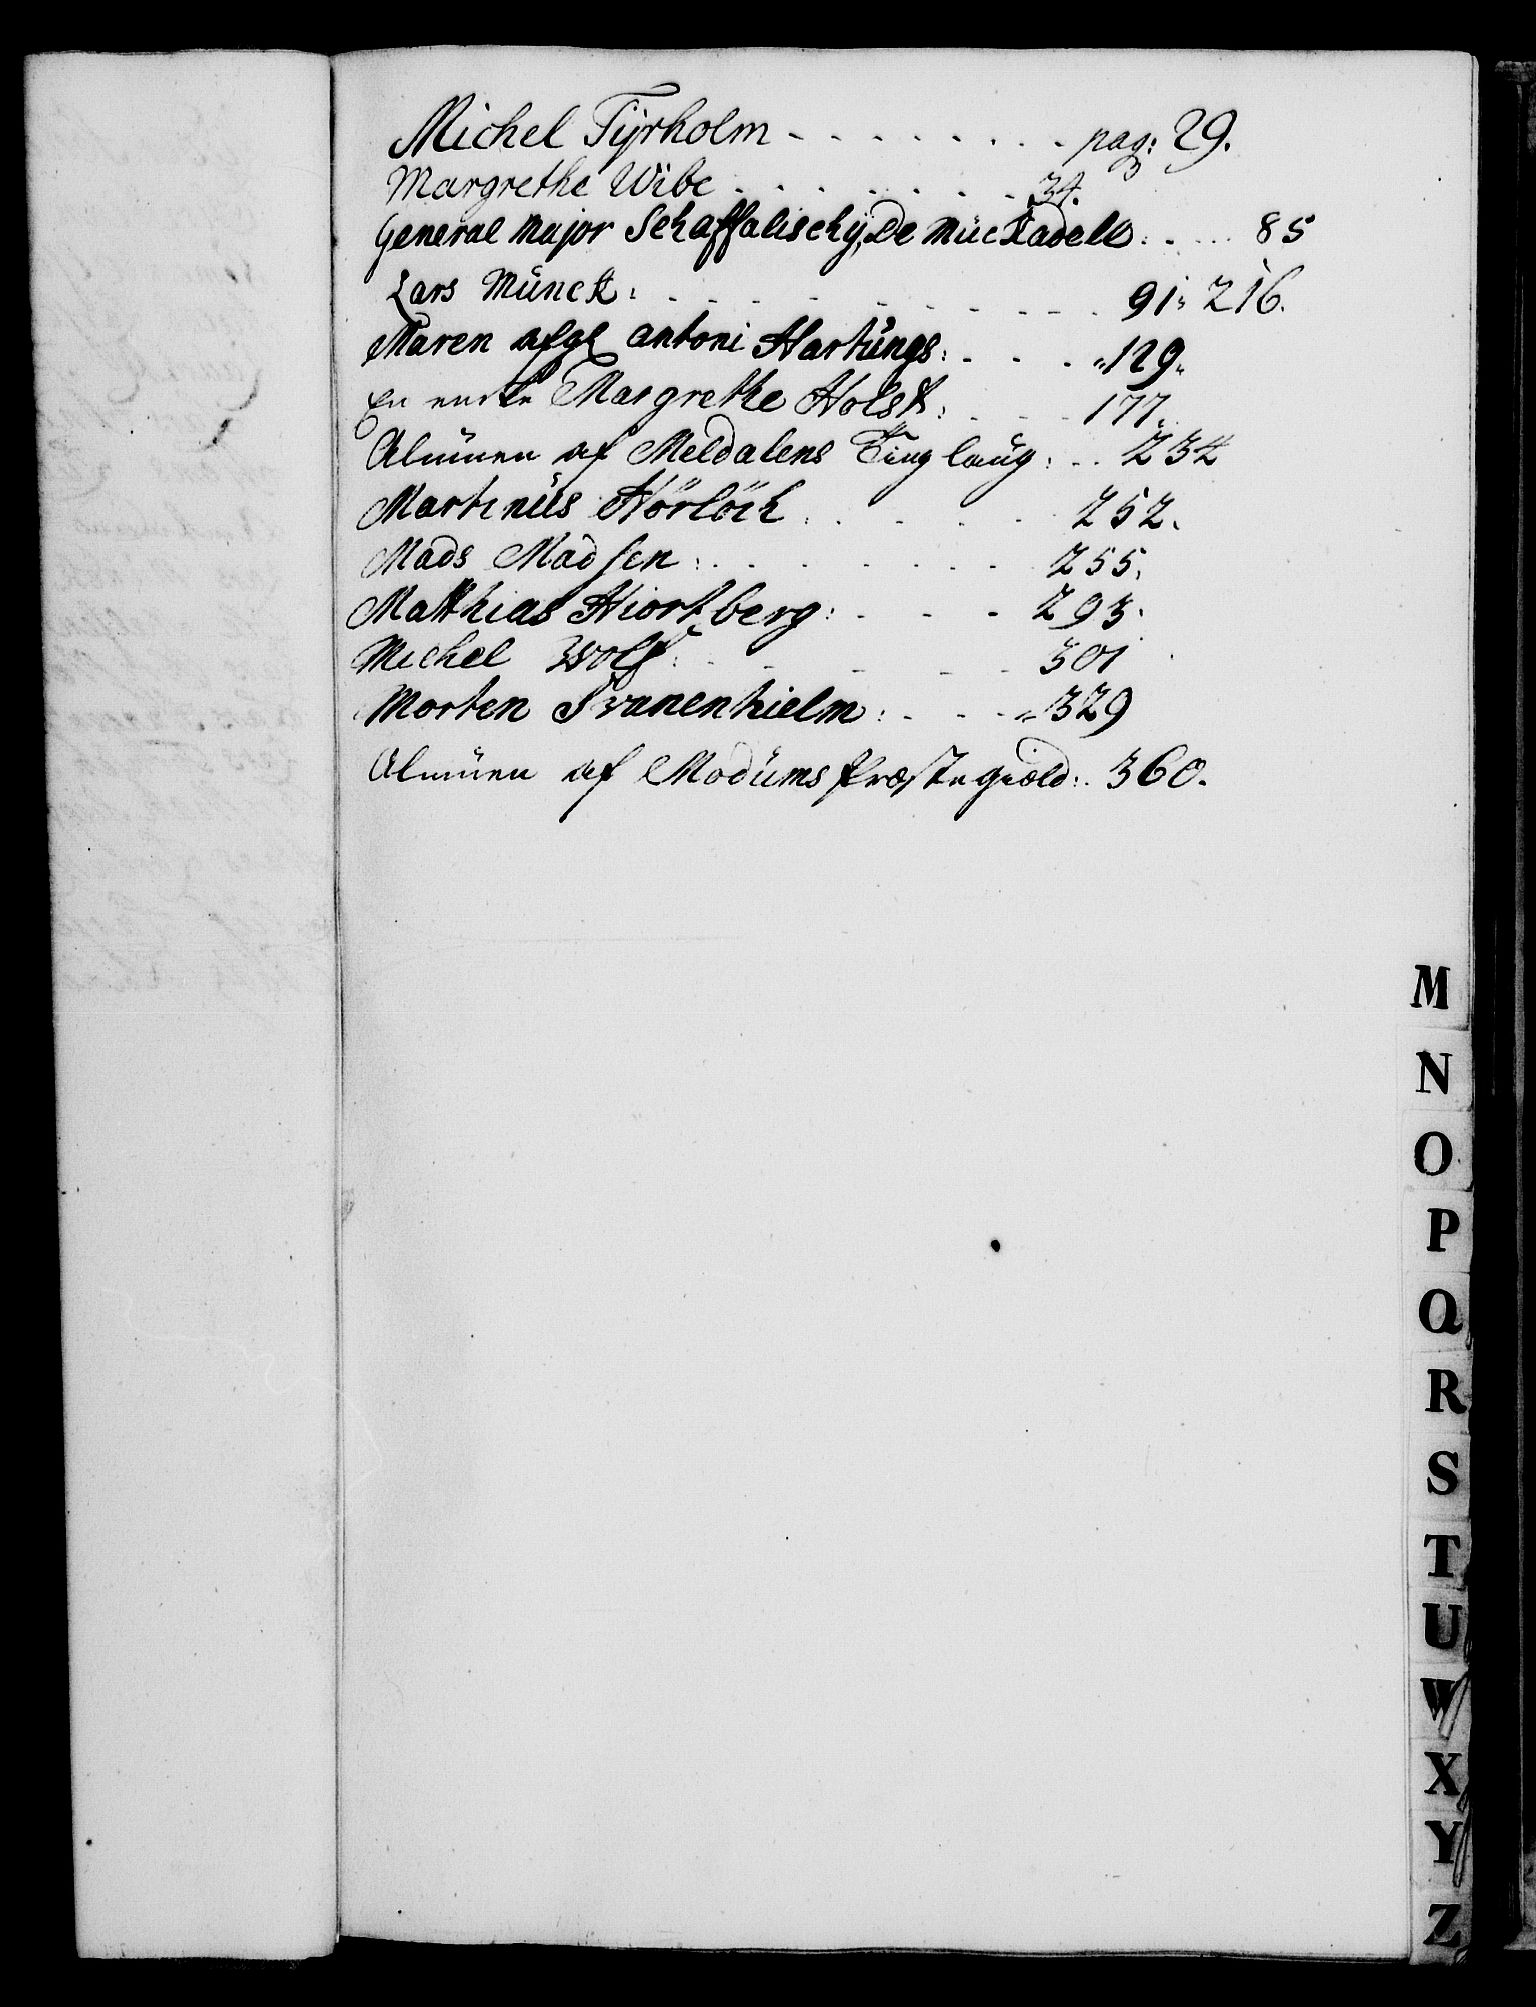 Michel Tyrholm - - - - - - - - pag: 29.
Margrethe Wibe - - - - - - - 34.
General Major Schaffalischÿ, De Mückadell: - - - 85
Lars Münck: - - - - - - - - - - - 91: 216.
Maren afgl antoni Hartüngs: - - - - „129„
En enke Margrethe Holst: - - - - 177.
Almüen af Meldalens Tinglaüg: - - 234
Martinüs Hörlöch: - - - - - 252.
Mads Madsen: - - - - - - - 255.
Matthias Hiortberg: - - - - 293.
Michel Wolf: - - - - - - 301
Morten Svanenhielm: - - - „329
Almüen af Modüms Præstegiæld: - 360.
M
N
O
P
Q
R
S
T
U
W
X
Y
Z